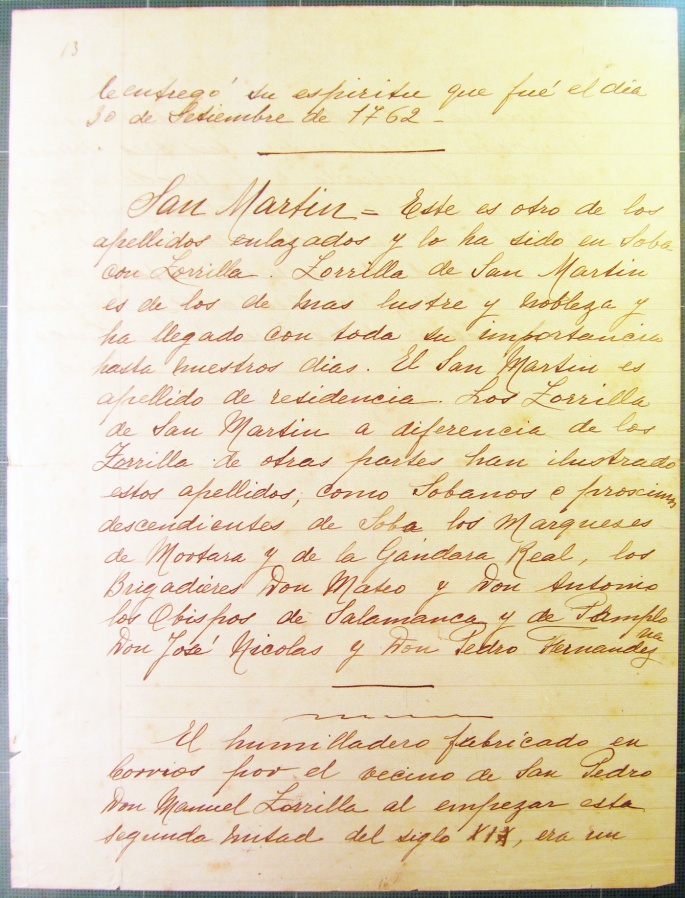 13
le entregó su espiritu que fué el dia
30 de Setiembre de 1762 -
San Martin = Este es otro de los
apellidos enlazados y lo ha sido en Soba
con Zorrilla. Zorrilla de San Martin
es de los de mas lustre y nobleza y
ha llegado con toda su importancia
hasta nuestros dias. El San Martin es
apellido de residencia. Los Zorrilla
de San Martin a diferencia de los
Zorrilla de otras partes han ilustrado
estos apellidos, como Sobanos o proximos
descendientes de Soba los Marqueses
de Mortara y de la Gándara Real, los
Brigadiéres Don Mateo y Don Antonio
los Obispos de Salamanca y de Pamplona
Don José Nicolas y Don Pedro Fernandez
El humilladero fabricado en
por el vecino de San Pedro
Don Manuel Zorrilla al empezar esta
segunda mitad del siglo XIX, era un